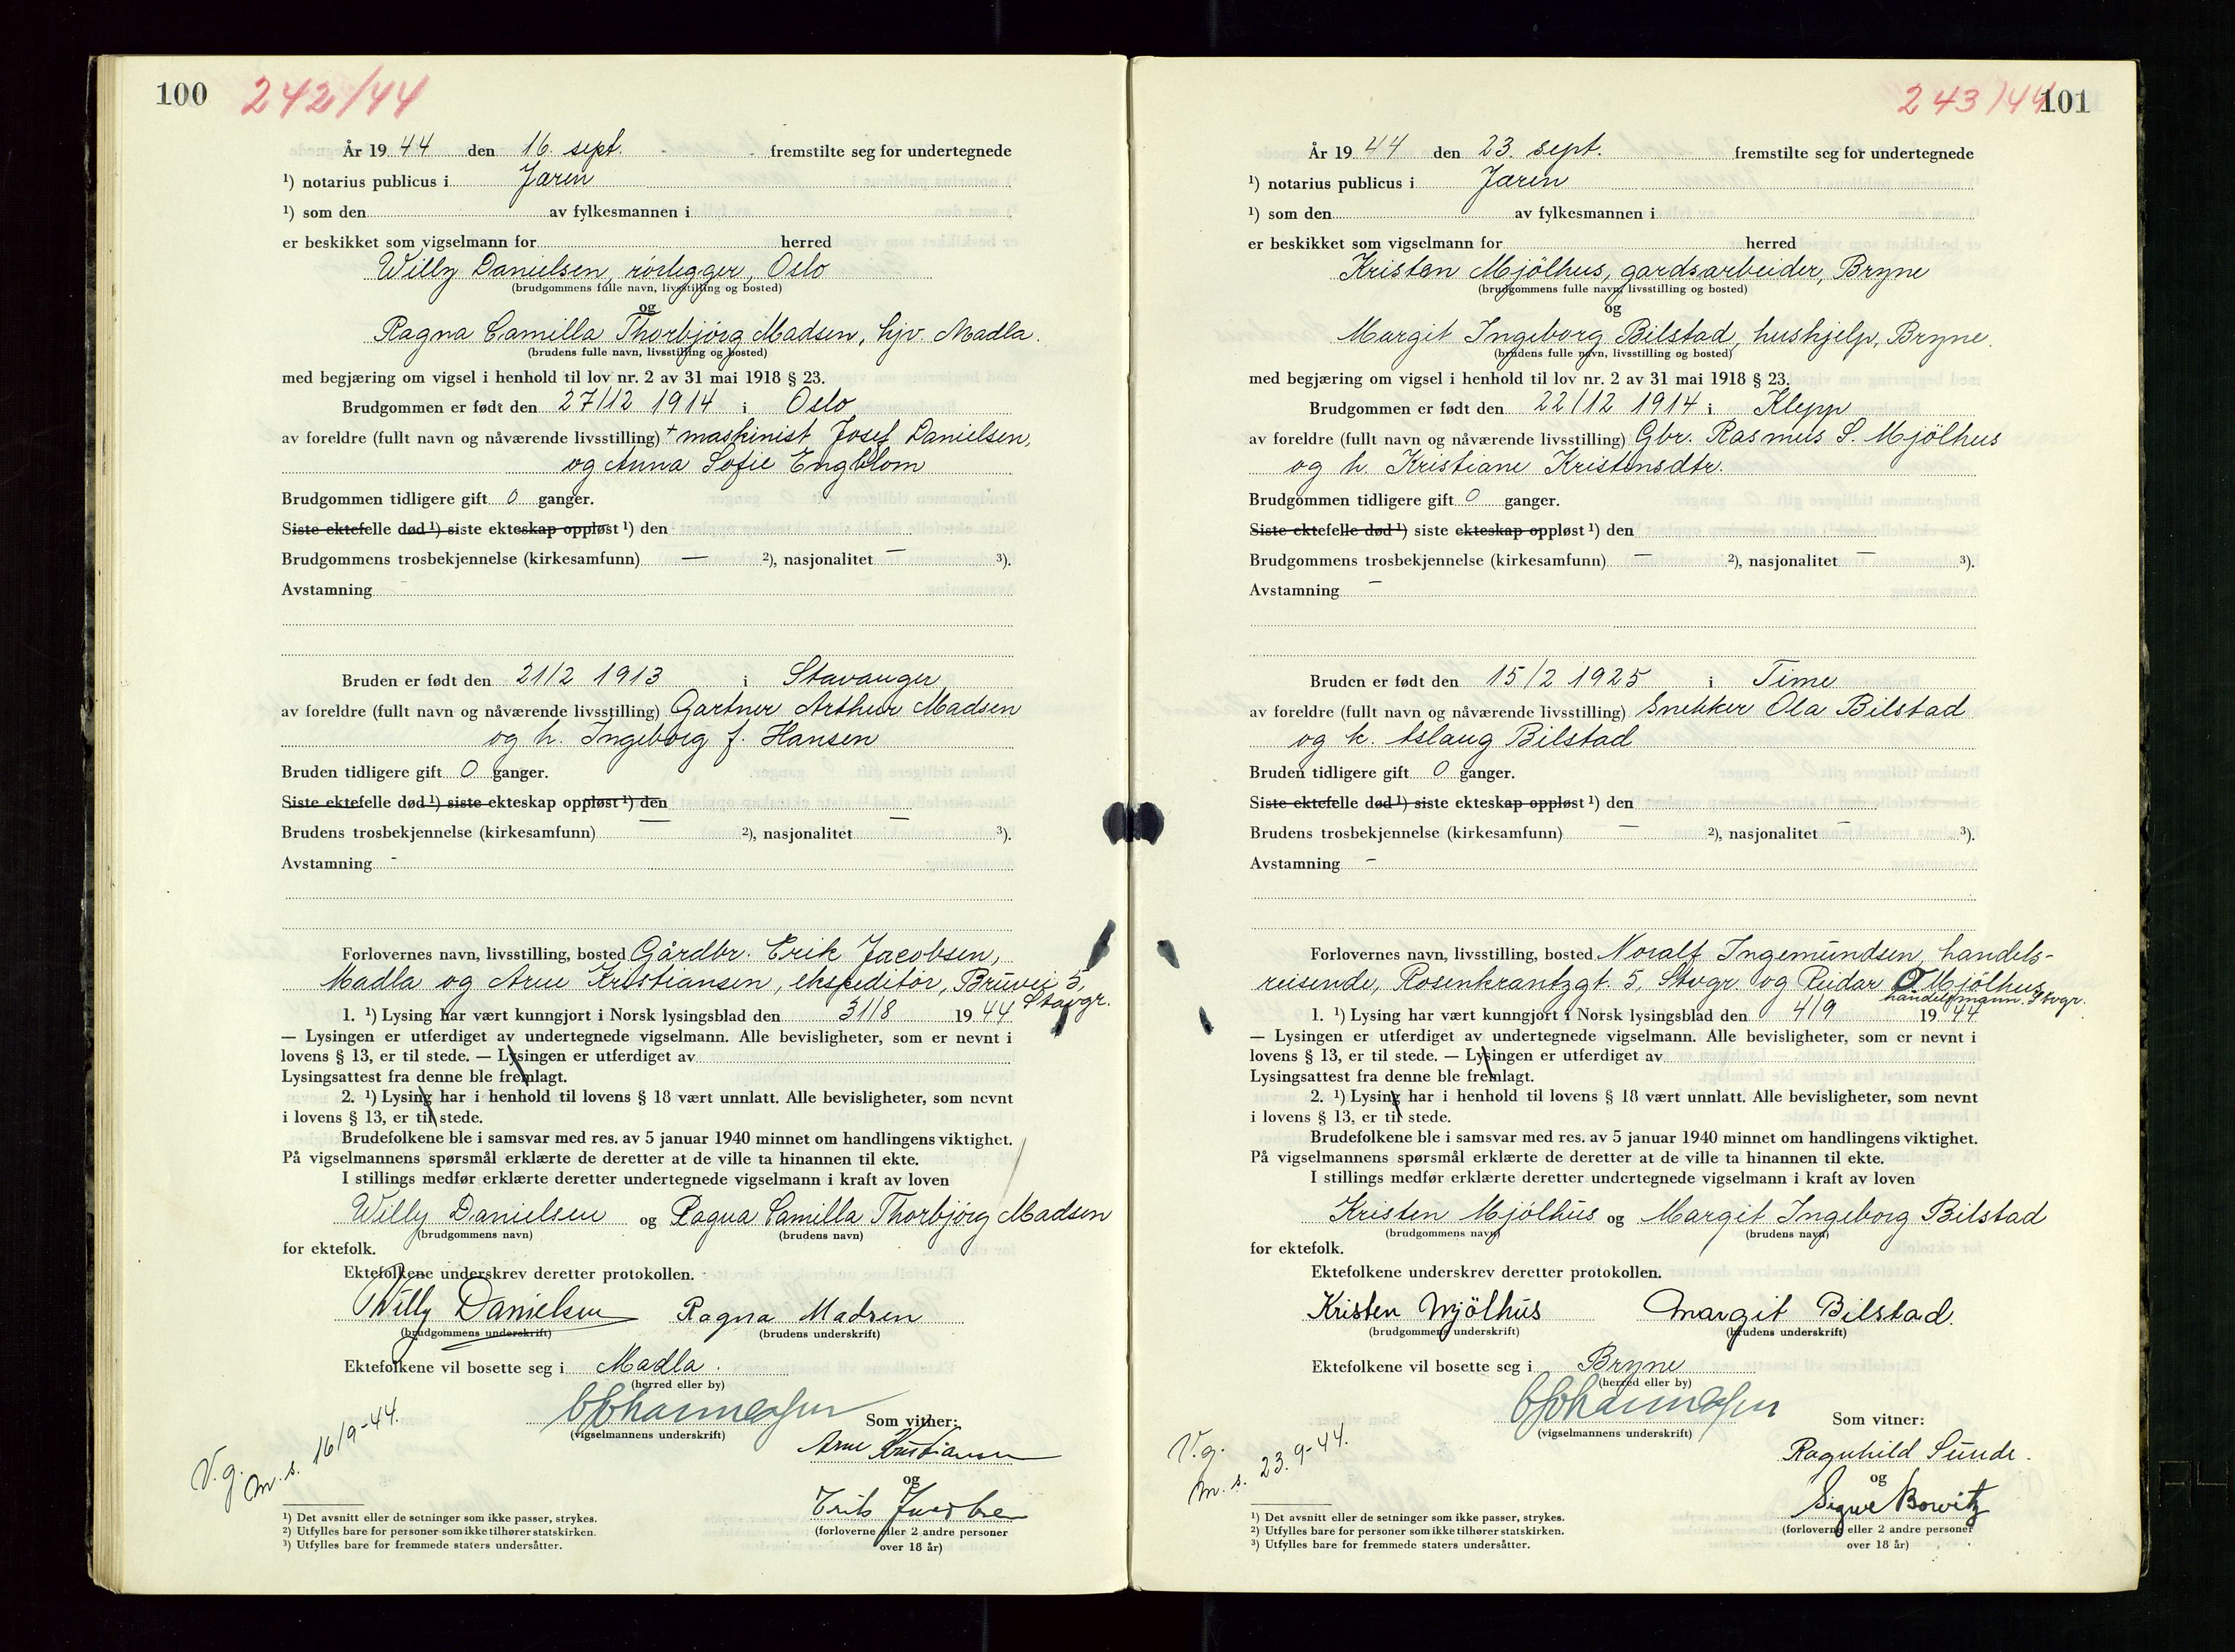 100 242/44
År 19 44 den 16. sept. fremstilte seg for undertegnede
¹) notarius publicus i Jæren
¹) som den av fylkesmannen i
er beskikket som vigselmann for herred
Willy Danielsen, rörlegger, Oslo
(brudgommens fulle navn, livsstilling og bosted)
og
Ragna Camilla Thorbjörg Madsen, hjv. Madla.
(brudens fulle navn, livsstilling og bosted)
med begjæring om vigsel i henhold til lov nr. 2 av 31 mai 1918 § 23.
Brudgommen er født den 27/12 1914 i Oslo
av foreldre (fullt navn og nåværende livsstilling) + maskinist Josef Danielsen,
og Anna Sofie Engblom
Brudgommen tidligere gift 0 ganger.
Siste ektefelle død ¹) siste ekteskap oppløst ¹) den
Brudgommens trosbekjennelse (kirkesamfunn) — ²), nasjonalitet — ³).
Avstamning -
Bruden er født den 21/2 1913 i Stavanger
av foreldre (fullt navn og nåværende livsstilling) Gartner Arthur Madsen
og h. Ingeborg f. Hansen
Bruden tidligere gift 0 ganger.
Siste ektefelle død ¹) siste ekteskap oppløst ¹) den
Brudens trosbekjennelse (kirkesamfunn) — ²), nasjonalitet — ³).
Avstamning -
Forlovernes navn, livsstilling, bosted Gårdbr. Erik Jacobsen,
Madla og Arne Kristiansen, ekspeditör, Bruvei 5,
Stavgr.
1. ¹) Lysing har vært kunngjort i Norsk lysingsblad den 31/8 19 44
— Lysingen er utferdiget av undertegnede vigselmann. Alle bevisligheter, som er nevnt i
lovens § 13, er til stede. — Lysingen er utferdiget av
Lysingsattest fra denne ble fremlagt.
2. ¹) Lysing har i henhold til lovens § 18 vært unnlatt. Alle bevisligheter, som nevnt
i lovens § 13, er til stede.
Brudefolkene ble i samsvar med res. av 5 januar 1940 minnet om handlingens viktighet.
På vigselmannens spørsmål erklærte de deretter at de ville ta hinannen til ekte.
I stillings medfør erklærte deretter undertegnede vigselmann i kraft av loven
Willy Danielsen og Ragna Camilla Thorbjörg Madsen
(brudgommens navn) (brudens navn)
for ektefolk.
Ektefolkene underskrev deretter protokollen.
Willy Danielsen Ragna Madsen
(brudgommens underskrift) (brudens underskrift)
Ektefolkene vil bosette seg i Madla.
(herred eller by)
(vigselmannens underskrift)
Som vitner:
Arne Kristiansen
og
Erik Jacobsen
(forloverne eller 2 andre personer
over 18 år)
V.g.
m.s. 16/9-44.
¹) Det avsnitt eller de setninger som ikke passer, strykes.
²) Utfylles bare for personer som ikke tilhører statskirken.
³) Utfylles bare for fremmede staters undersåtter.
243/44 101
År 19 44 den 23. sept. fremstilte seg for undertegnede
¹) notarius publicus i Jæren
¹) som den av fylkesmannen i
er beskikket som vigselmann for herred
Kristen Mjölhus, gardsarbeider, Bryne
(brudgommens fulle navn, livsstilling og bosted)
og
Margit Ingeborg Bilstad, hushjelp, Bryne.
(brudens fulle navn, livsstilling og bosted)
med begjæring om vigsel i henhold til lov nr. 2 av 31 mai 1918 § 23.
Brudgommen er født den 22/12 1914 i Klepp
av foreldre (fullt navn og nåværende livsstilling) Gbr. Rasmus S. Mjölhus
og h. Kristiane Kristensdtr.
Brudgommen tidligere gift 0 ganger.
Siste ektefelle død ¹) siste ekteskap oppløst ¹) den
Brudgommens trosbekjennelse (kirkesamfunn) — ²), nasjonalitet — ³).
Avstamning —
Bruden er født den 15/2 1925 i Time
av foreldre (fullt navn og nåværende livsstilling) Snekker Ola Bilstad
og h. Aslaug Bilstad
Bruden tidligere gift 0 ganger.
Siste ektefelle død ¹) siste ekteskap oppløst ¹) den
Brudens trosbekjennelse (kirkesamfunn) — ²), nasjonalitet — ³).
Avstamning —
Forlovernes navn, livsstilling, bosted Noralf Ingemundsen, handels-
reisende, Rosenkrantzgt. 5, Stvgr og Reidar O Mjölhus
handelsmann. Stvgr.
1. ¹) Lysing har vært kunngjort i Norsk lysingsblad den 4/9 19 44
— Lysingen er utferdiget av undertegnede vigselmann. Alle bevisligheter, som er nevnt i
lovens § 13, er til stede. — Lysingen er utferdiget av
Lysingsattest fra denne ble fremlagt.
2. ¹) Lysing har i henhold til lovens § 18 vært unnlatt. Alle bevisligheter, som nevnt
i lovens § 13, er til stede.
Brudefolkene ble i samsvar med res. av 5 januar 1940 minnet om handlingens viktighet.
På vigselmannens spørsmål erklærte de deretter at de ville ta hinannen til ekte.
I stillings medfør erklærte deretter undertegnede vigselmann i kraft av loven
Kristen Mjölhus og Margit Ingeborg Bilstad
(brudgommens navn) (brudens navn)
for ektefolk.
Ektefolkene underskrev deretter protokollen.
Kristen Mjölhus Margit Bilstad.
(brudgommens underskrift) (brudens underskrift)
Ektefolkene vil bosette seg i Bryne
(herred eller by)
(vigselmannens underskrift)
Som vitner:
Ragnhild Sunde.
og
Signe Bowitz
(forloverne eller 2 andre personer
over 18 år)
V.g.
m. s. 23.9-44.
¹) Det avsnitt eller de setninger som ikke passer, strykes.
²) Utfylles bare for personer som ikke tilhører statskirken.
³) Utfylles bare for fremmede staters undersåtter.